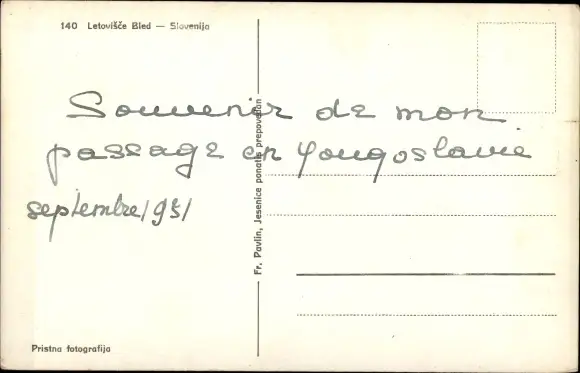 140 Letovišče Bled — Slovenija
Souvenir de mon
passage en Yougoslavie
septembre 1951
Fr. Pavlin, Jesenice ponatis prepovedan
Pristna fotografija